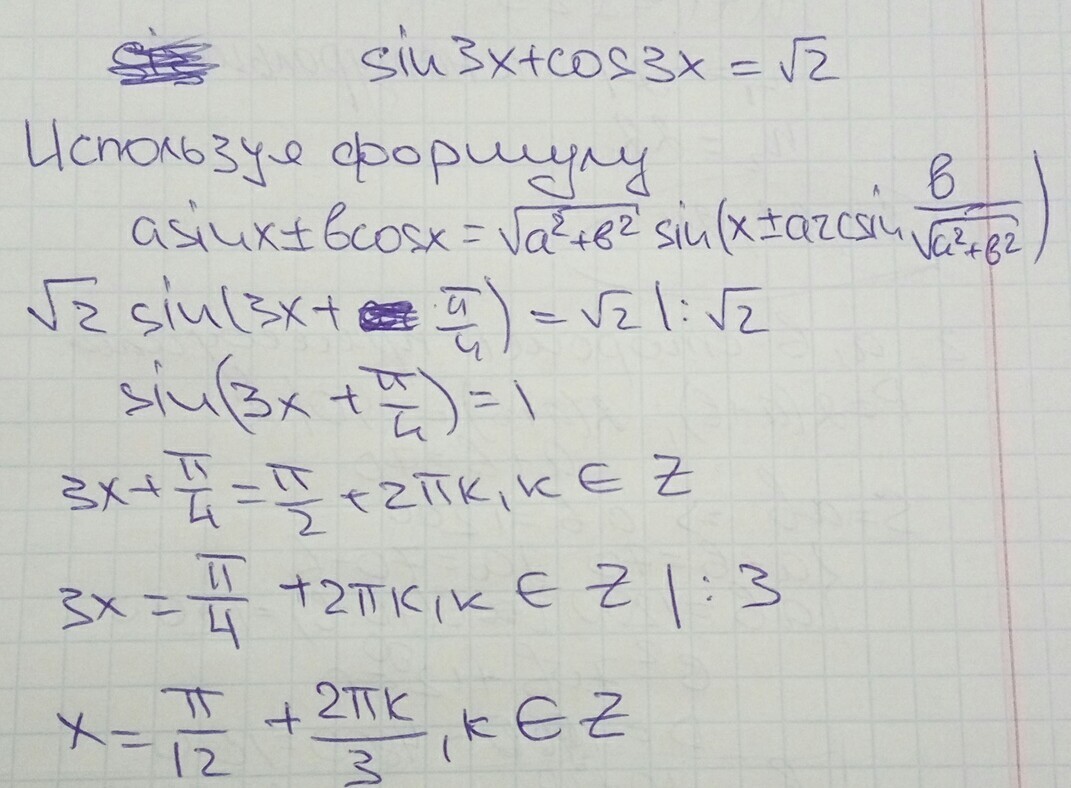 sin3x+cos3x=√2
Используя формулу
asinx±bcosx=√(a²+b²) sin(x±arcsin b/√(a²+b²))
√2 sin(3x+π/4)=√2 |:√2
sin(3x+π/4)=1
3x+π/4=π/2+2πk, k∈Z
3x=π/4+2πk, k∈Z |:3
x=π/12+2πk/3, k∈Z